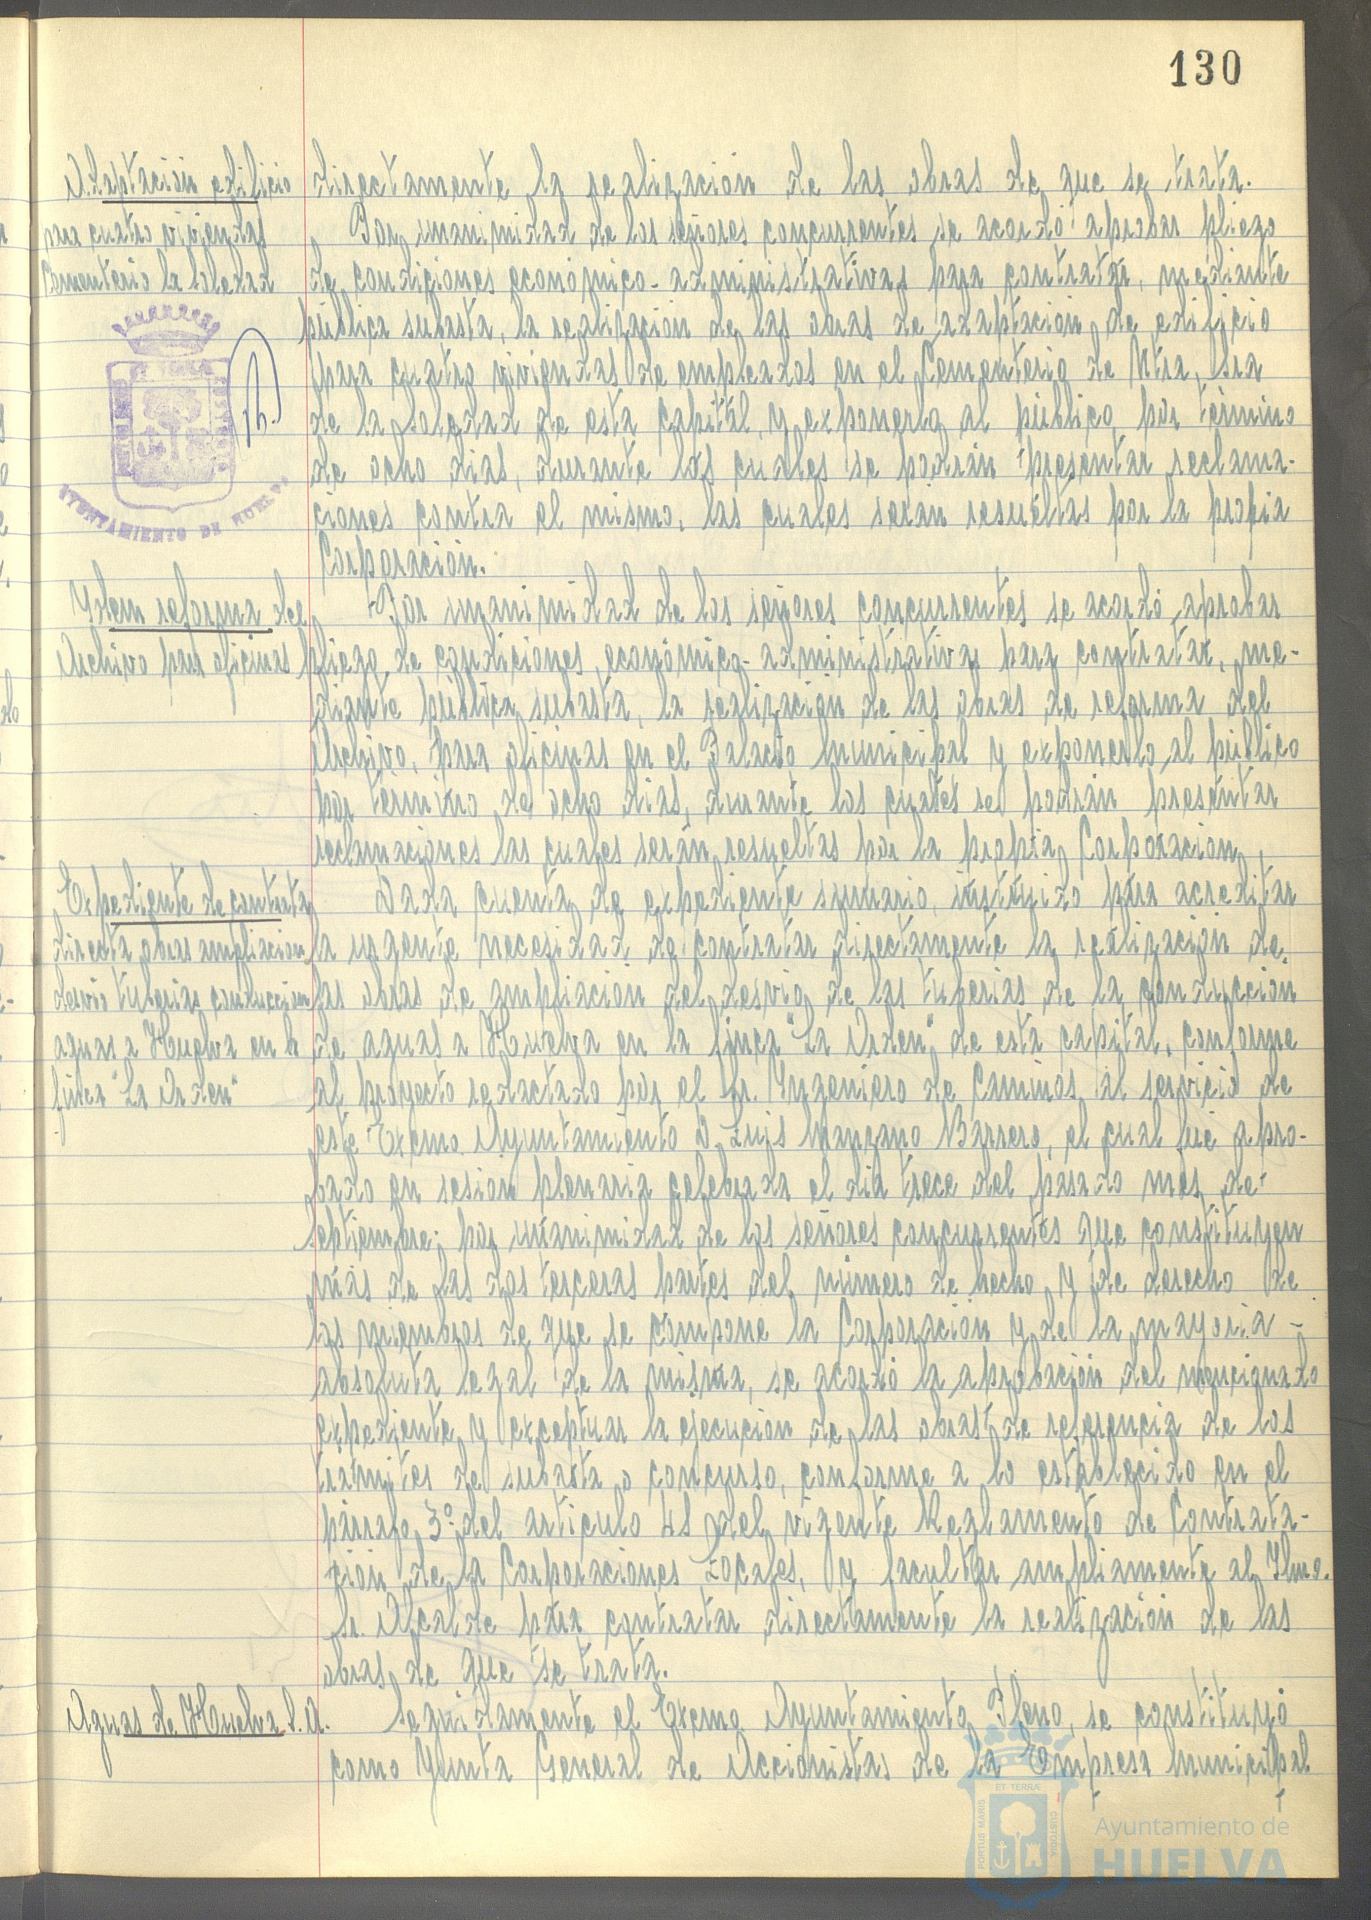 130
Adaptación edificio
para cuatro viviendas
Cementerio la Soledad
directamente la realización de las obras de que se trata.
Por unanimidad de los señores concurrentes se acordó aprobar pliego
de condiciones económico-administrativas para contratar, mediante
pública subasta, la realización de las obras de adaptación de edificio
para cuatro viviendas de empleados en el Cementerio de Ntra. Sra
de la Soledad de esta capital, y exponerlo al público por término
de ocho días, durante los cuales se podrán presentar reclama-
ciones contra el mismo, las cuales serán resueltas por la propia
Corporación.
PORTUS MARIS ET TERRAE CUSTODIA
AYUNTAMIENTO DE HUELVA
Ydem reforma del
Archivo para oficinas
Por unanimidad de los señores concurrentes se acordó aprobar
pliego de condiciones económico-administrativas para contratar, me-
diante pública subasta, la realización de las obras de reforma del
Archivo, para oficinas en el Palacio Municipal y exponerlo al público
por término de ocho días, durante los cuales se podrán presentar
reclamaciones las cuales serán resueltas por la propia Corporación.
Expediente de contrata
directa obras ampliación
desvío tuberías conducción
aguas a Huelva en la
finca "La Orden"
Dada cuenta de expediente sumario, instruido para acreditar
la urgente necesidad de contratar directamente la realización de
las obras de ampliación del desvío de las tuberías de la conducción
de aguas a Huelva en la finca "La Orden" de esta capital, conforme
al proyecto redactado por el Sr. Yngeniero de Caminos al servicio de
este Excmo. Ayuntamiento D. Luis Manzano Barrero, el cual fue apro-
bado en sesión plenaria celebrada el día trece del pasado mes de
Septiembre; por unanimidad de los señores concurrentes que constituyen
más de las dos terceras partes del número de hecho y de derecho de
los miembros de que se compone la Corporación y de la mayoría
absoluta legal de la misma, se acordó la aprobación del mencionado
expediente y exceptuar la ejecución de las obras de referencia de los
trámites de subasta o concurso, conforme a lo establecido en el
párrafo 3º del artículo 41 del vigente Reglamento de Contrata-
ción de la Corporaciones Locales, y facultar ampliamente al Ylmo.
Sr. Alcalde para contratar directamente la realización de las
obras de que se trata.
Aguas de Huelva S.A.
Seguidamente el Excmo. Ayuntamiento Pleno, se constituyó
como Junta General de Accionistas de la Empresa Municipal
PORTUS MARIS ET TERRÆ CUSTODIA
Ayuntamiento de
HUELVA